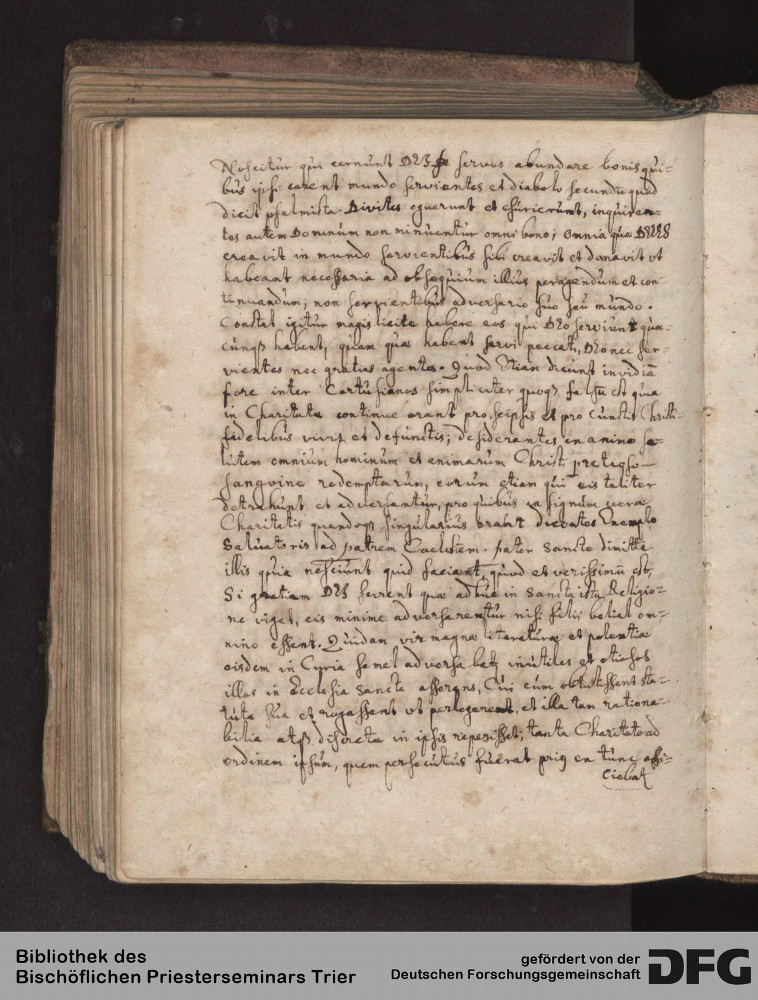 Noscitur qui cernunt DEI servos abundare bonis qui=
bus ipsi carent mundo servientes et diabolo secundu quod
dicit psalmista. Divites eguerunt et esurierunt, inquiren=
tes autem Dominum non minuentur omni bono; omnia quæ DEUS
creavit in mundo servientibus sibi creavit et donavit ut
habeant necessaria ad obsequium illius peragendum et con=
tinuandum; non servientibus adversario suo seu mundo.
Constat igitur magis licite habere eos qui DEo serviunt quæ=
cunqȝ habent, quam quæ habent servi peccati, DEo nec ser=
vientes nec gratias agentes. Quod Etiam dicunt invidiā
fore inter Cartusianos simpliciter quoqȝ falsū est quia
in Charitate continue orant pro seipsis et pro cunctis Christi=
fidelibus vivis et defunctis; desiderantes ex animo sa=
lutem omnium hominum et animarum Christi pretioso
sanguine redemptarum, eorum etiam qui eis taliter
detrahunt et adversantur, pro quibus in signum veræ
Charitatis quandoqȝ singularius orant dicentes Exemplo
Salvatoris ad patrem Coelestem. pater Sancte dimitte
illis quia nesciunt quid faciant, quod et verissimū est,
Si gratiam DEI scirent quæ adhuc in Sancta ista Religio=
ne viget, eis minime adversarentur nisi filii belial om=
nino essent. Quidam vir magnæ literaturæ et potentiæ
eisdem in Curia semel adversabatȝ inutiles et otiosos
illos in Ecclesia Sancta asserens, Cui cum obtulissent sta=
tuta sua et rogassent ut perlegeret, et illa tam rationa=
bilia atqȝ discreta in ipsis reperisset, tanta Charitate ad
ordinem ipsum, quem persecutus fuerat priꝯ ex tunc affi=
ciebatȝ
Bibliothek des
Bischöflichen Priesterseminars Trier
gefördert von der
Deutschen Forschungsgemeinschaft
DFG